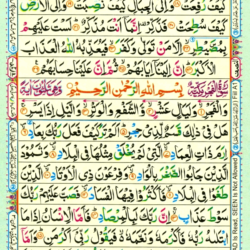 كَيْفَ رُفِعَتْ وَاِلَى الْجِبَالِ كَيْفَ نُصِبَتْ وَاِلَى الْاَرْضِ
كَيْفَ سُطِحَتْ فَذَكِّرْ اِنَّمَاۤ اَنْتَ مُذَكِّرٌ لَسْتَ عَلَيْهِمْ
بِمُصَۜيْطِرٍ اِلَّا مَنْ تَوَلّٰى وَكَفَرَ فَيُعَذِّبُهُ اللّٰهُ الْعَذَابَ
الْاَكْبَرَ اِنَّ اِلَيْنَاۤ اِيَابَهُمْ ثُمَّ اِنَّ عَلَيْنَا حِسَابَهُمْ
بِسْمِ اللّٰهِ الرَّحْمٰنِ الرَّحِيْمِ
وَالْفَجْرِ وَلَيَالٍ عَشْرٍ وَّالشَّفْعِ وَالْوَتْرِ وَالَّيْلِ اِذَا يَسْرِ
هَلْ فِيْ ذٰلِكَ قَسَمٌ لِّذِيْ حِجْرٍ اَلَمْ تَرَ كَيْفَ فَعَلَ رَبُّكَ بِعَادٍ
اِرَمَ ذَاتِ الْعِمَادِ الَّتِيْ لَمْ يُخْلَقْ مِثْلُهَا فِي الْبِلَادِ وَثَمُوْدَ
الَّذِيْنَ جَابُوا الصَّخْرَ بِالْوَادِ وَفِرْعَوْنَ ذِي الْاَوْتَادِ الَّذِيْنَ
طَغَوْا فِي الْبِلَادِ فَاَكْثَرُوْا فِيْهَا الْفَسَادَ فَصَبَّ عَلَيْهِمْ رَبُّكَ
سَوْطَ عَذَابٍ اِنَّ رَبَّكَ لَبِالْمِرْصَادِ فَاَمَّا الْاِنْسَانُ اِذَا مَا